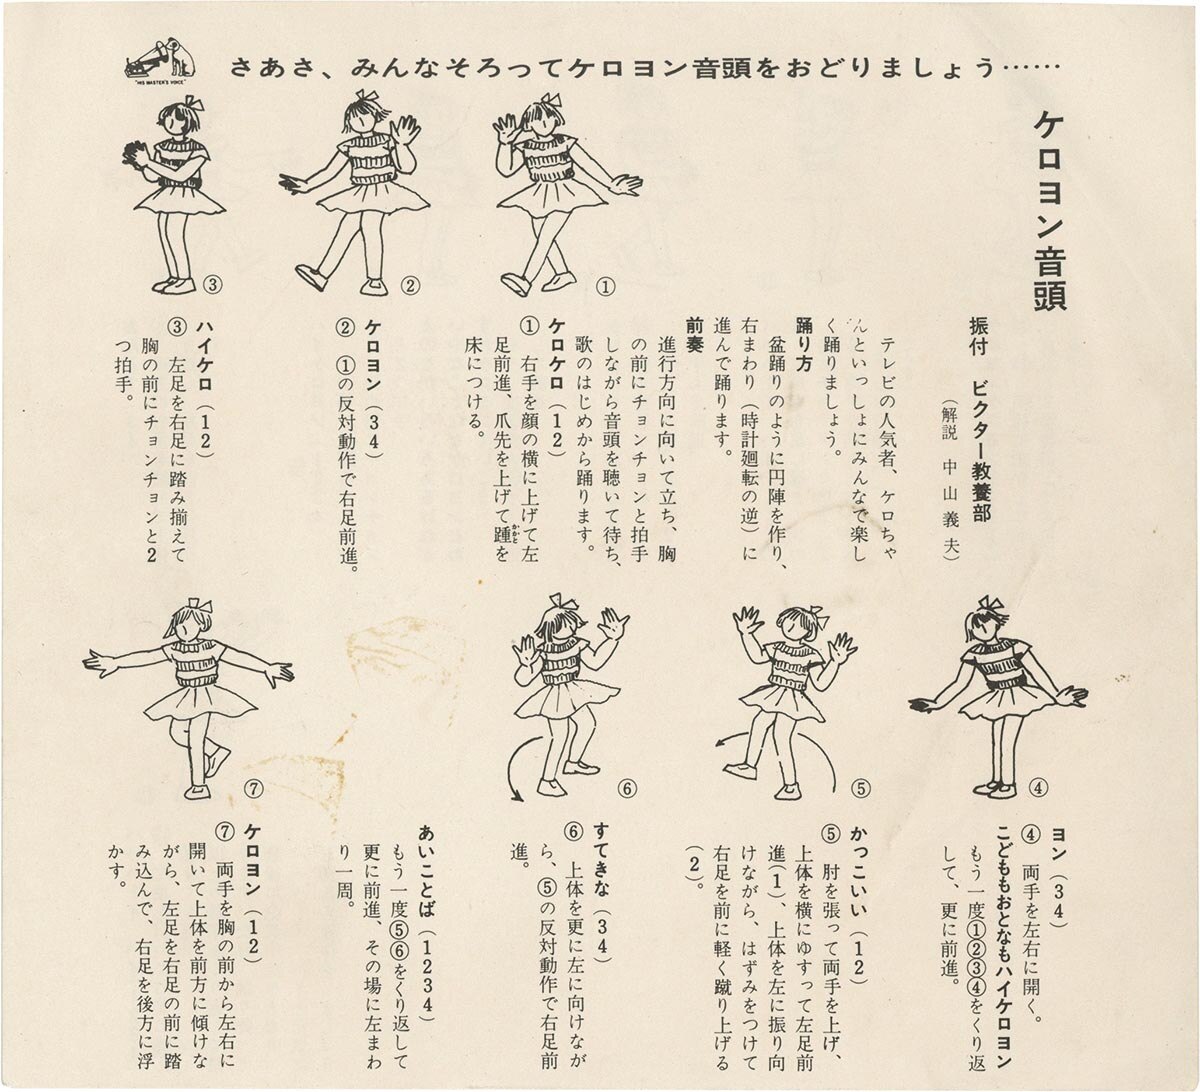 "HIS MASTER'S VOICE"
さあさ、みんなそろってケロヨン音頭をおどりましょう……
ケロヨン音頭
振付 ビクター教養部
(解説 中山義夫)
テレビの人気者、ケロちゃ
んといっしょにみんなで楽し
く踊りましょう。
踊り方
盆踊りのように円陣を作り、
右まわり(時計廻転の逆)に
進んで踊ります。
前奏
進行方向に向いて立ち、胸
の前にチョンチョンと拍手
しながら音頭を聴いて待ち、
歌のはじめから踊ります。
①
ケロケロ(12)
① 右手を顔の横に上げて左
足前進、爪先を上げて踵(かかと)を
床につける。
②
ケロヨン(34)
② ①の反対動作で右足前進。
③
ハイケロ(12)
③ 左足を右足に踏み揃えて
胸の前にチョンチョンと2
つ拍手。
④
ヨン(34)
④ 両手を左右に開く。
こどももおとなもハイケロヨン
もう一度①②③④をくり返
して、更に前進。
⑤
かっこいい(12)
⑤ 肘を張って両手を上げ、
上体を横にゆすって左足前
進(1)、上体を左に振り向
けながら、はずみをつけて
右足を前に軽く蹴り上げる
(2)。
⑥
すてきな(34)
⑥ 上体を更に左に向けなが
ら、⑤の反対動作で右足前
進。
あいことば(1234)
もう一度⑤⑥をくり返して
更に前進、その場に左まわ
り一周。
⑦
ケロヨン(12)
⑦ 両手を胸の前から左右に
開いて上体を前方に傾けな
がら、左足を右足の前に踏
み込んで、右足を後方に浮
かす。